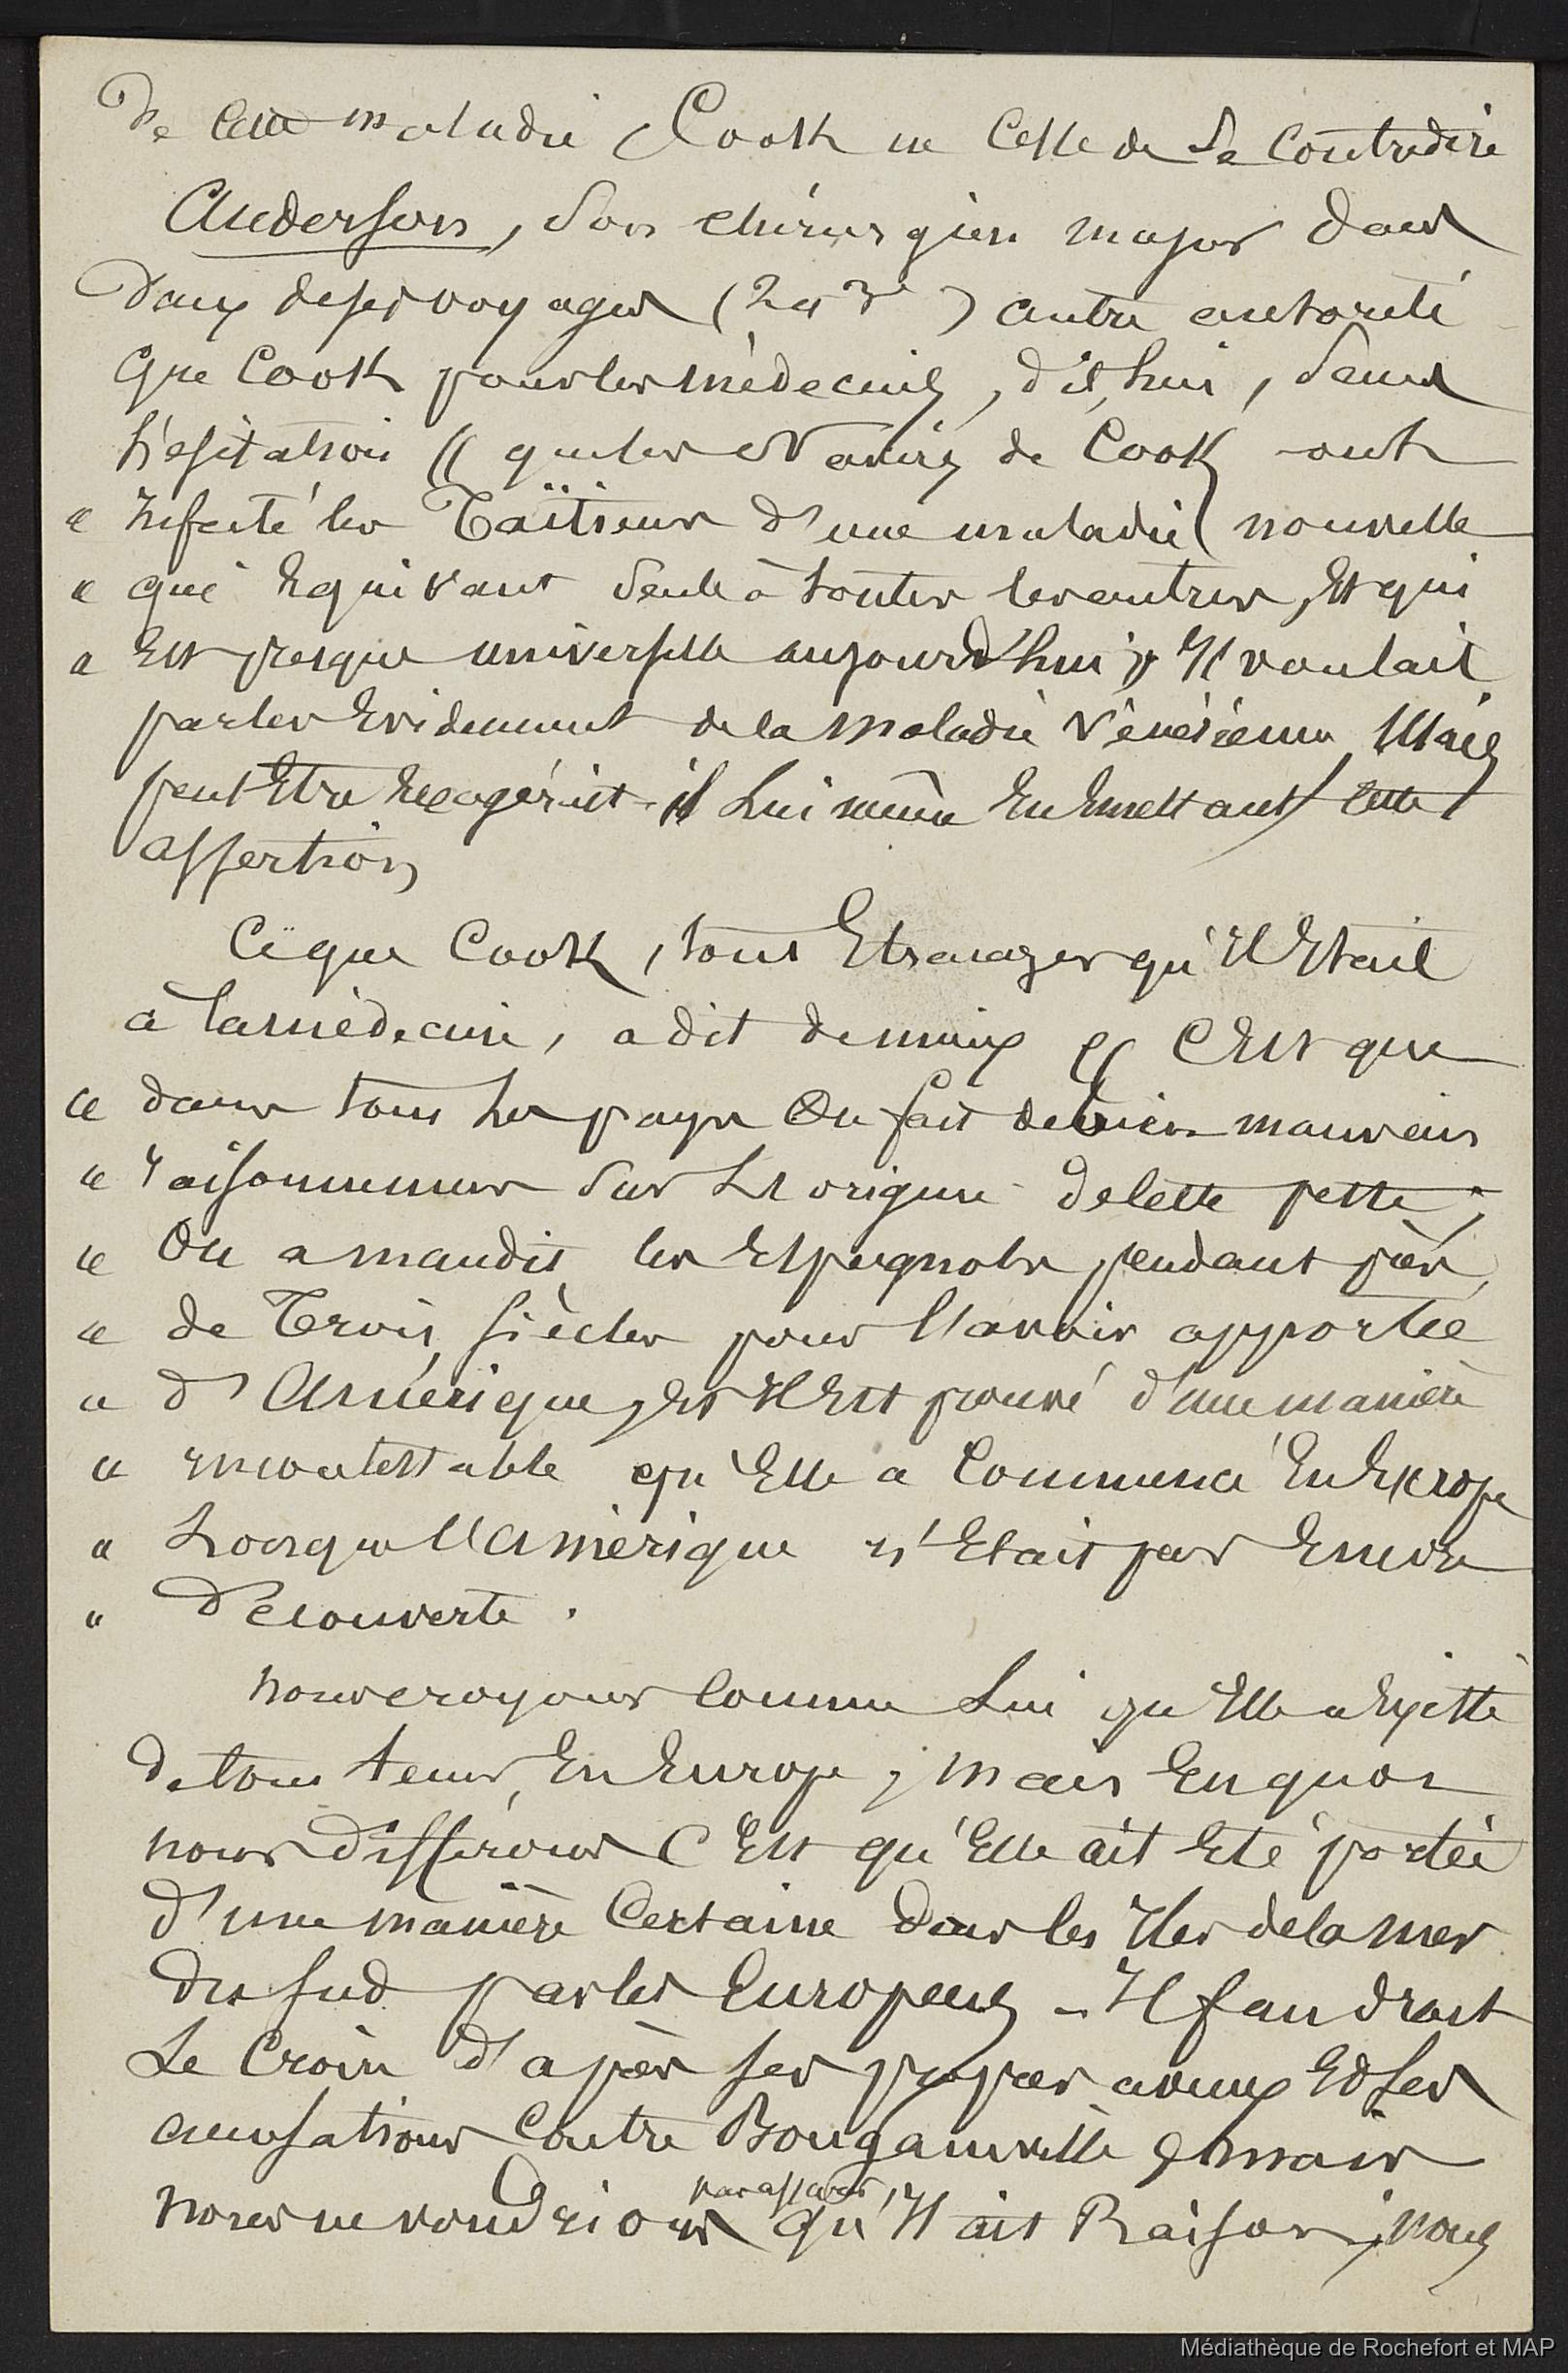 De cette maladie Cook ne cesse de se contredire
Anderson, son chirurgien major dans
Deux de ses voyages (2 et 3e) autre autorité
que Cook pour les médecins, dit, lui, sans
hésitation (( que les Navires de Cook ont
" infecté les Taïtiens d'une maladie nouvelle
" qui Equivaut seule à toutes les autres, Et qui
" Est presque universelle aujourd'hui )) Il voulait
parler Evidemment de la maladie vénérienne Mais
peut Etre Exagérait-il lui même En Emettant cette
assertion
Ce que Cook, tout Etranger qu'Il Etait
à la médecine, a dit de mieux (( C'Est que
" dans tous les pays On fait de bien mauvais
" raisonnemens sur L'origine de cette peste;
" On a maudit les Espagnols pendant près
" de Trois siècles pour l'avoir apportée
" d'Amérique, Et Il Est prouvé d'une manière
" incontestable qu'Elle a Commencé En Europe
" Lorsque l'Amérique n'Etait pas Encore
" Découverte.
nous croyons comme Lui qu'Elle a Existé
de tous tems, En Europe; mais En quoi
nous différons C'Est qu'Elle ait Eté portée
d'une manière Certaine dans les Iles de la mer
du sud par les Européens - Il faudrait
Le Croire d'après ses propres aveux Et ses
accusations Contre Bougainville, mais
pas assurer
nous ne voudrions qu'Il ait Raison, nous
Médiathèque de Rochefort et MAP